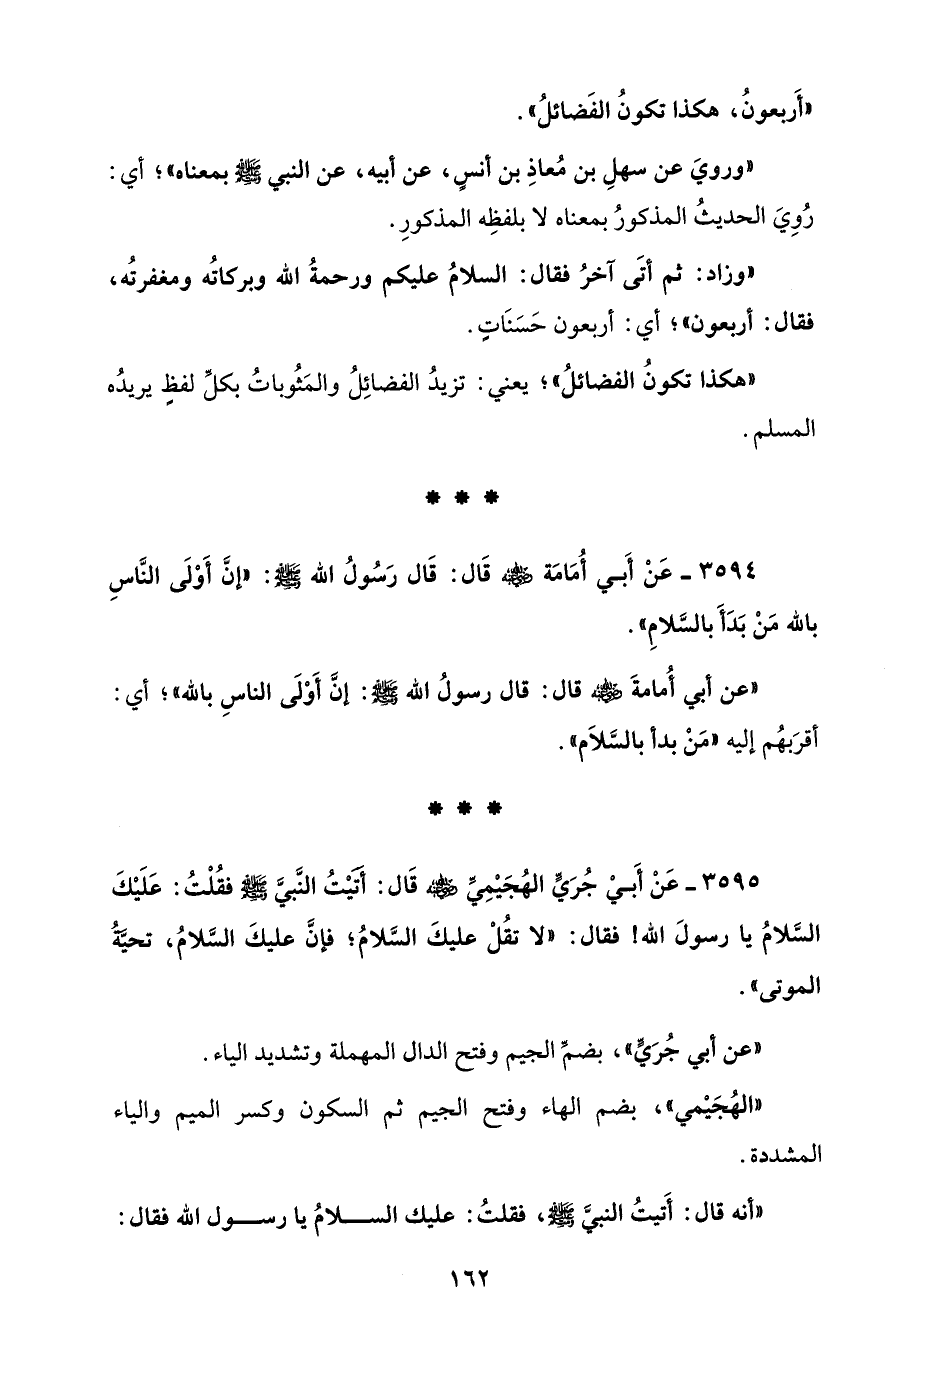 «أَربعونُ، هكذا تكونُ الفَضائلُ».
«ورويَ عن سهلِ بن مُعاذِ بن أنسٍ، عن أبيه، عن النبي ﷺ بمعناه»؛ أي:
رُوِيَ الحديثُ المذكورُ بمعناه لا بلفظِه المذكورِ.
«وزاد: ثم أتَى آخرُ فقال: السلامُ عليكم ورحمةُ الله وبركاتُه ومغفرتُه،
فقال: أربعون»؛ أي: أربعون حَسَنَاتٍ.
«هكذا تكونُ الفضائلُ»؛ يعني: تزيدُ الفضائِلُ والمَثُوباتُ بكلِّ لفظٍ يريدُه
المسلم.
* * *
٣٥٩٤ ـ عَنْ أَبـي أُمَامَة ﷺ قَال: قَال رَسُولُ الله ﷺ: «إنَّ أَوْلَى النَّاسِ
بالله مَنْ بَدَأَ بالسَّلامِ».
«عن أبي أُمامةَ ﷺ قال: قال رسولُ الله ﷺ: إنَّ أَوْلَى الناسِ بالله»؛ أي:
أقرَبهُم إليه «مَنْ بدأ بالسَّلاَم».
* * *
٣٥٩٥ ـ عَنْ أَبـيْ جُرَيٍّ الهُجَيْمِيِّ ﷺ قَال: أَتَيْتُ النَّبيَّ ﷺ فقُلْتُ: عَلَيْكَ
السَّلامُ يا رسولَ الله! فقال: «لا تقُلْ عليكَ السَّلامُ؛ فإنَّ عليكَ السَّلامُ، تحيَّةُ
الموتى».
«عن أبي جُرَيٍّ»، بضمِّ الجيم وفتح الدال المهملة وتشديد الياء.
«الهُجَيْمي»، بضم الهاء وفتح الجيم ثم السكون وكسر الميم والياء
المشددة.
«أنه قال: أَتيتُ النبيَّ ﷺ، فقلتُ: عليك الســلامُ يا رســول الله فقال:
١٦٢